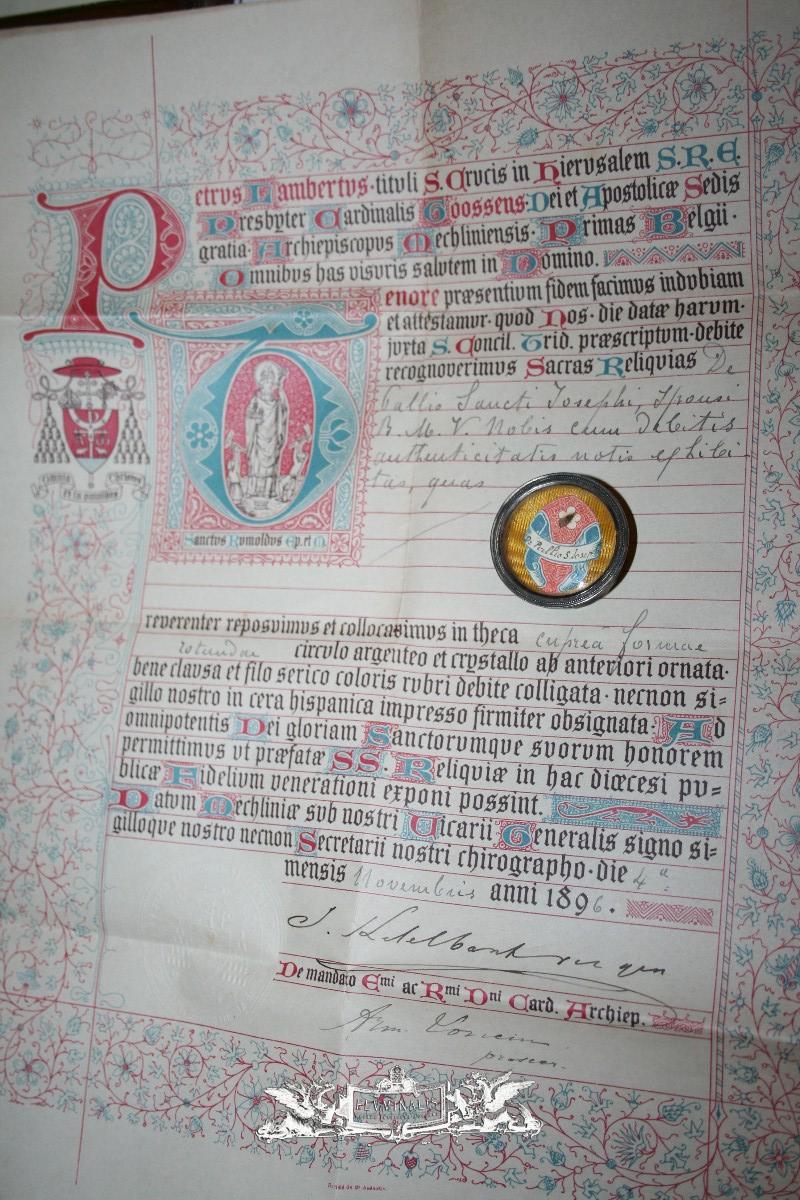 Petrus Lambertus· tituli S. Crucis in Hierusalem S. R. E.
Presbyter Cardinalis Goossens· Dei et Apostolicæ Sedis
gratia· Archiepiscopus Mechliniensis· Primas Belgii·
Omnibus has visuris salutem in Domino.
Tenore præsentium fidem facimus indubiam
et attestamur· quod Nos· die datæ harum·
juxta S. Concil. Trid. præscriptum· debite
recognoverimus Sacras Reliquias De
Pallio Sancti Josephi, Sponsi
B. M. V Nobis cum debitis
authenticitatis notis exhibi-
tas, quas
Omnia
et in omnibus
Christus
Sanctus Rumoldus Ep. et M.
De Pallio S. Josephi
reverenter reposuimus et collocavimus in theca cupreâ formae
rotundae circulo argenteo et crystallo ab anteriori ornata·
bene clausa et filo serico coloris rubri debite colligata· necnon si=
gillo nostro in cera hispanica impresso firmiter obsignata: Ad
omnipotentis Dei gloriam Sanctorumque suorum honorem
permittimus ut præfatæ SS. Reliquiæ in hac diœcesi pu=
blicæ Fidelium venerationi exponi possint.
Datum Mechliniæ sub nostri Vicarii Generalis signo si=
gilloque nostro necnon Secretarii nostri chirographo· die 4a
mensis Novembris anni 1896.
De mandato Emi ac Rmi Dni Card. Archiep.